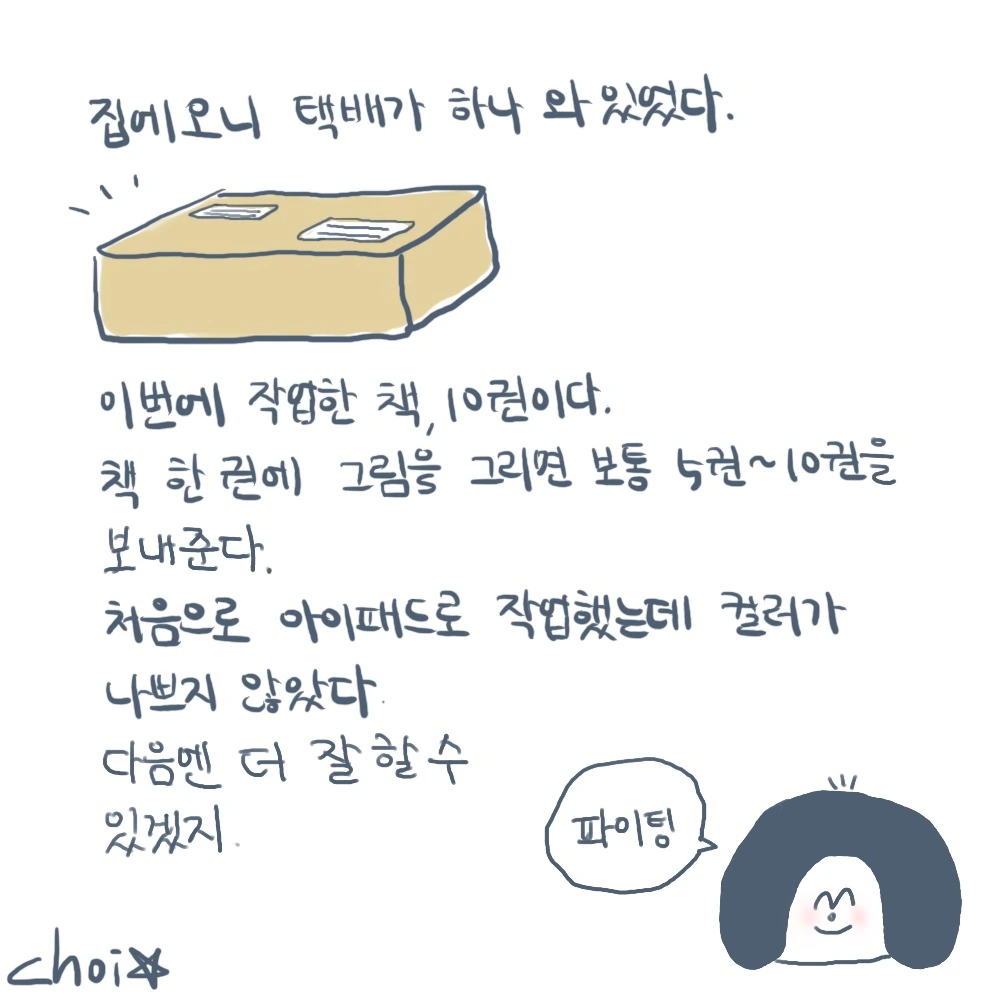 집에오니 택배가 하나 와있었다.
이번에 작업한 책, 10권이다.
책 한 권에 그림을 그리면 보통 5권~10권을
보내준다.
처음으로 아이패드로 작업했는데 컬러가
나쁘지 않았다.
다음엔 더 잘 할 수
있겠지.
파이팅
choi